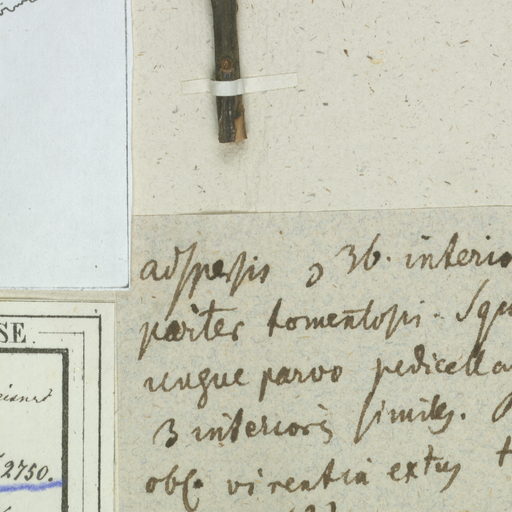 adspersis 36. interio
partes tomentosis. Squ
ungue parvo pedicella
3 interioris similes.
obs. virentia extus t
SE
2750.